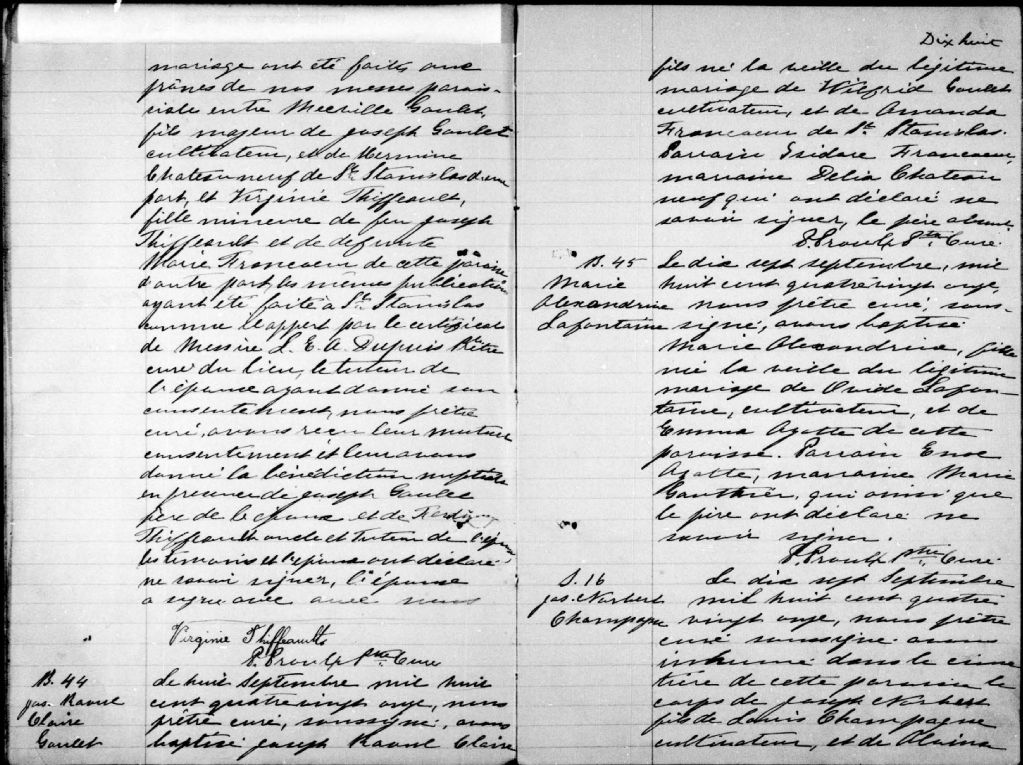 mariage ont été faits aux
prônes de nos messes parois-
siales entre Goulet,
fils majeur de Joseph Goulet
cultivateur, et de Hermine
Chateauneuf de St Stanislas d'une
part, et Virginie Thiffeault,
fille mineure de feu Joseph
Thiffeault et de defunte
Marie Francoeur de cette paroisse
d'autre part, les mêmes publications
ayant été faite à St Stanislas
comme il appert par le certificat
de Messire L. E. A. Dupuis Ptre
curé du lieu, le tuteur de
l'épouse ayant donné son
consentement, nous prêtre
curé, avons reçu leur mutuel
consentement et leur avons
donné la bénédiction nuptiale
en presence de Joseph Goulet
père de l'epoux et de
Thiffeault oncle et tuteur de l'épouse
les temoins et l'époux ont déclaré
ne savoir signer, l'épouse
a signé avec nous
Virginie Thiffeault
P. Proulx Ptre Curé
B. 44
Jos. Raoul
Claire
Goulet
Le huit Septembre mil huit
cent quatre vingt onze, nous
prêtre curé, soussigné, avons
baptisé Joseph Raoul Claire
Dix huit
fils né la veille du légitime
mariage de Wilfrid Goulet
cultivateur, et de Amanda
Francoeur de St Stanislas.
Parrain Isidore Francoeur,
marraine Delia Chateau
neuf qui ont déclaré ne
savoir signer, le père absent.
P. Proulx Ptre Curé
B. 45
Marie
Alexandrine
Lafontaine
Le dix sept septembre, mil
huit cent quatre vingt onze,
nous prêtre curé, sous-
signé, avons baptisé
Marie Alexandrine, fille
née la veille du légitime
mariage de Ovide Lafon-
taine, cultivateur, et de
Emma Ayotte de cette
paroisse. Parrain
Ayotte, marraine Marie
Gauthier, qui ainsi que
le père ont déclaré ne
savoir signer.
P. Proulx Ptre Curé
S. 16
Jos. Norbert
Champagne
Le dix sept Septembre
mil huit cent quatre
vingt onze, nous prêtre
curé soussigné avons
inhumé dans le cime
tière de cette paroisse le
corps de Joseph Norbert
fils de Louis Champagne
cultivateur, et de